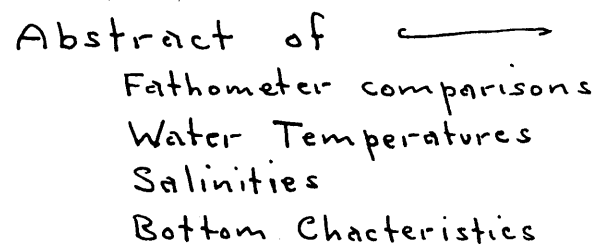 Abstract of
Fathometer comparisons
Water Temperatures
Salinities
Bottom Chacteristics